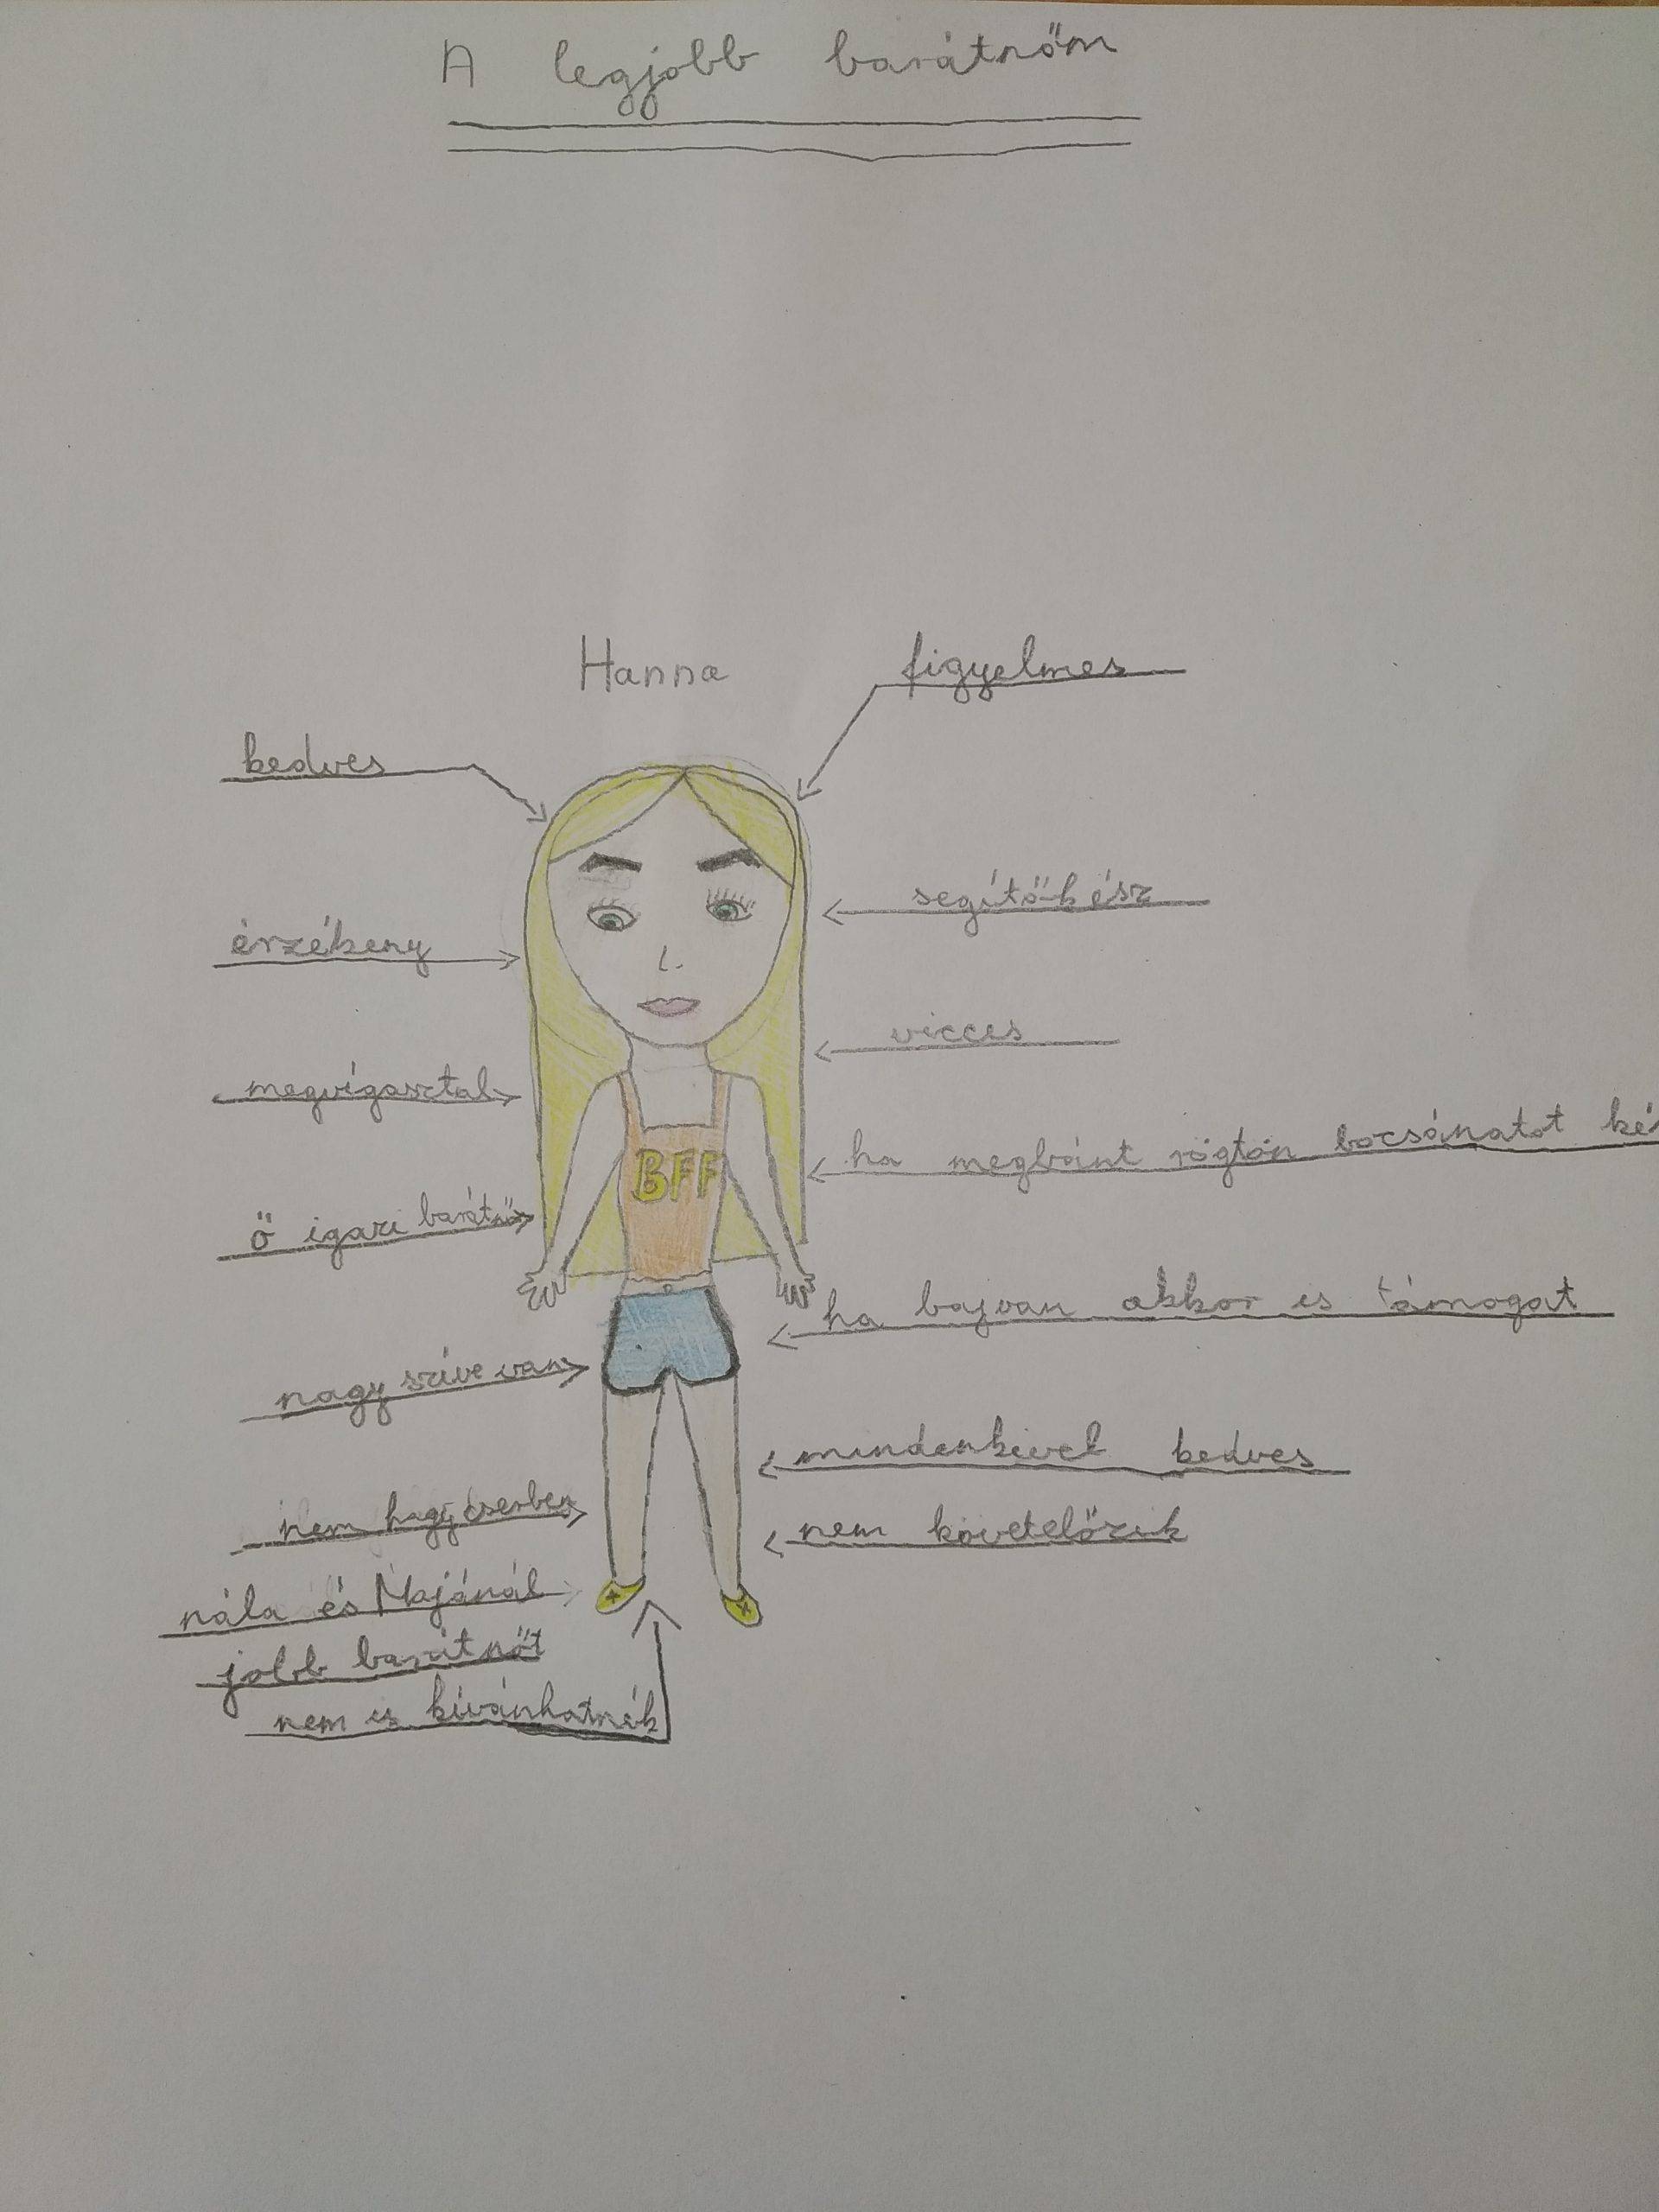 A legjobb barátnőm
Hanna
figyelmes
kedves
segítőkész
érzékeny
vicces
megvígasztal
ha megbánt rögtön bocsánatot ké
BFF
ő igazi barátnő
ha bajvan akkor is támogat
nagy szíve van
mindenkivel kedves
nem hagy cserben
nem követelőzik
nála és Majánál
jobb barátnőt
nem is kívánhatnék